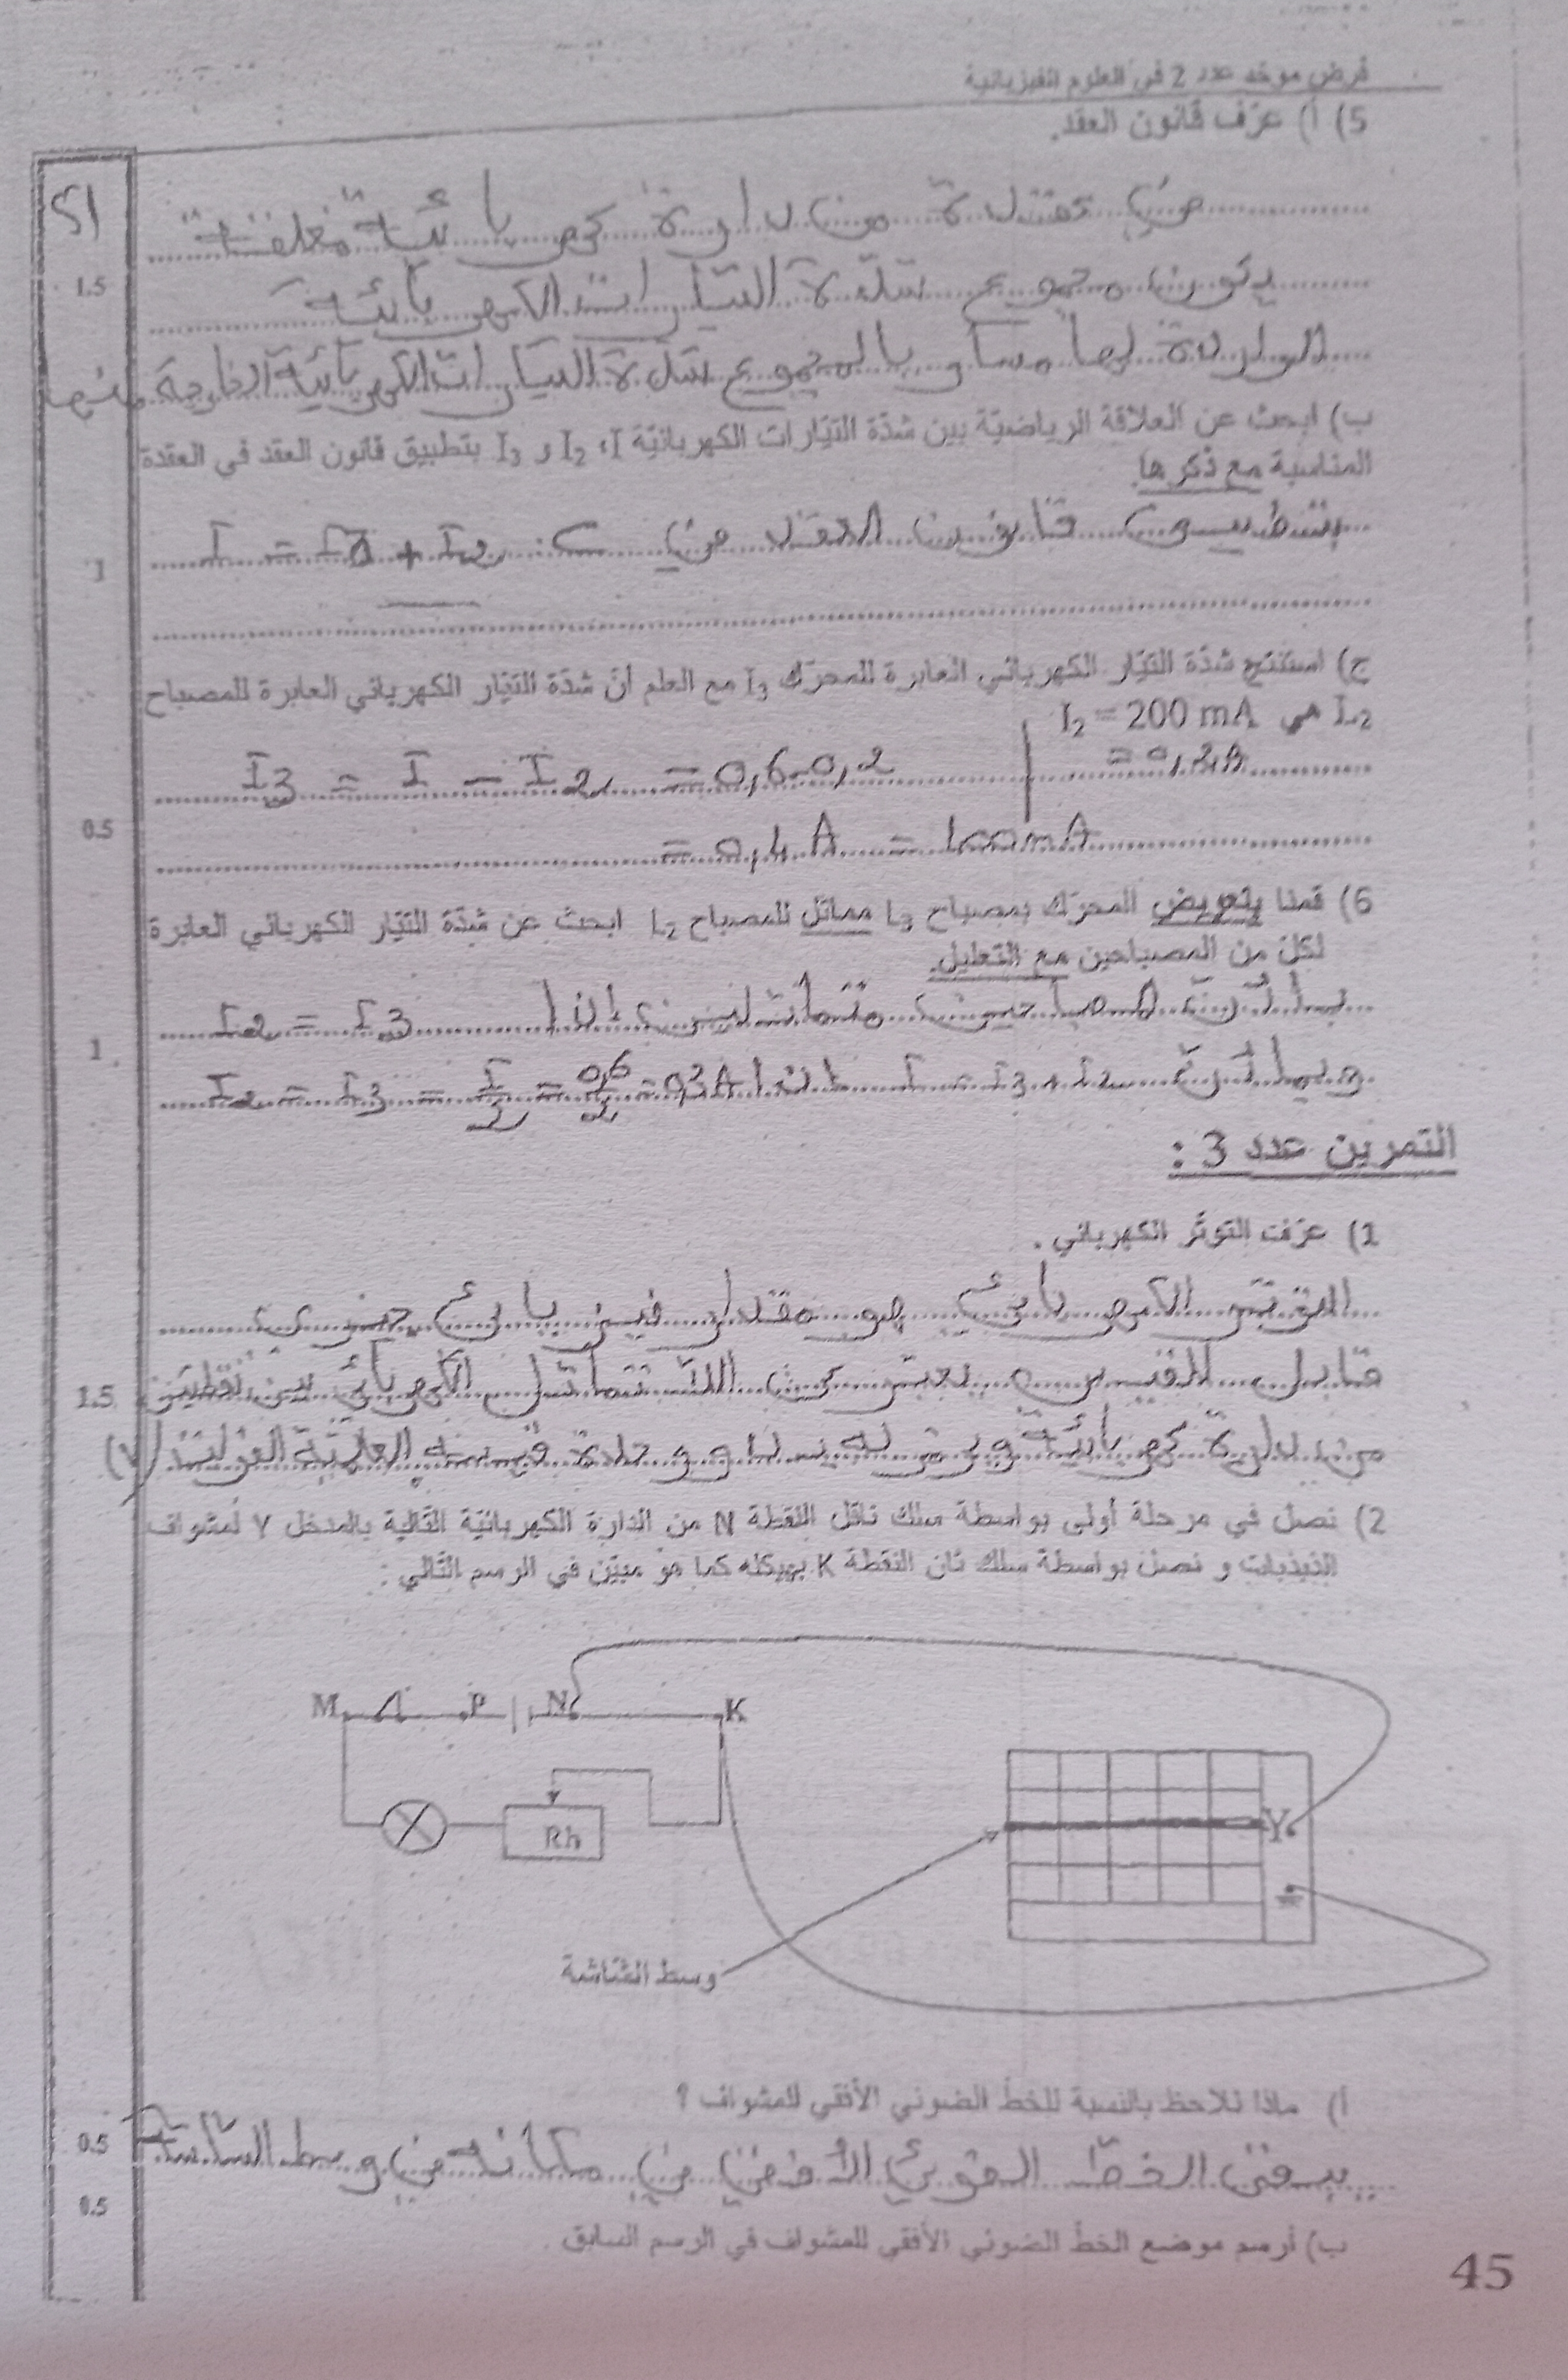 فرض موحد عدد 2 في العلوم الفيزيائية
5) أ) عرّف قانون العقد.
في عقدة من دارة كهربائية مغلقة
1.5
يكون مجموع شدّة التيارات الكهربائية
الواردة إليها مساو بالمجموع شدة التيارات الكهربائية الخارجة منها
ب) ابحث عن العلاقة الرياضيّة بين شدّة التيّارات الكهربائيّة I، I₂ و I₃ بتطبيق قانون العقد في العقدة
المناسبة مع ذكرها.
بتطبيق قانون العقد في I = I3 + I2
1
ج) استنتج شدّة التيّار الكهربائي العابرة للمحرّك I₃ مع العلم أنّ شدّة التيّار الكهربائي العابرة للمصباح
L₂ هي I₂ = 200 mA
= 0,2A
I3 = I - I2 = 0,6-0,2
0.5
= 0,4 A = 400mA
6) قمنا بتعويض المحرّك بمصباح L₃ مماثل للمصباح L₂ ابحث عن شدّة التيّار الكهربائي العابرة
لكلّ من المصباحين مع التعليل.
بما أنّ المصباحين متماثلين إذا I2 = I3
1
وبما أنّ I = I3 + I2 إذا I2 = I3 = I/2 = 0,6/2 = 0,3A
التمرين عدد 3 :
1) عرّف التوتّر الكهربائي .
التوتّر الكهربائي هو مقدار فيزيائي جبري
1.5
قابل للقيس يعبّر عن اللّا تماثل الكهربائي بين نقطتين
من دارة كهربائية ويرمز له بـ U ووحدة قيسه العالميّة الفولت (V)
2) نصل في مرحلة أولى بواسطة سلك ناقل النقطة N من الدارة الكهربائيّة التّالية بالمدخل Y لمشواف
الذبذبات و نصل بواسطة سلك ثان النقطة K بهيكله كما هو مبيّن في الرسم التّالي :
M P N K
Rh
Y
وسط الشّاشة
أ) ماذا تلاحظ بالنسبة للخطّ الضوئي الأفقي للمشواف ؟
0.5
يبقى الخطّ الضوئي الأفقي في مكانه في وسط الشاشة
0.5
ب) أرسم موضع الخطّ الضوئي الأفقي للمشواف في الرسم السابق .
45